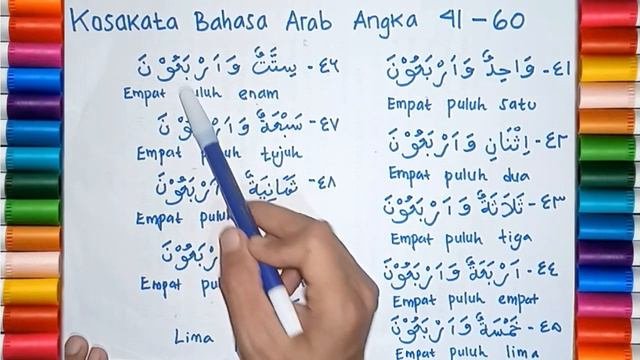 Kosakata Bahasa Arab Angka 41 - 60
٤١- وَاحِدٌ وَاَرْبَعُوْنَ
Empat puluh satu
٤٢- اِثْنَانِ وَاَرْبَعُوْنَ
Empat puluh dua
٤٣- ثَلَاثَةٌ وَاَرْبَعُوْنَ
Empat puluh tiga
٤٤- اَرْبَعَةٌ وَاَرْبَعُوْنَ
Empat puluh empat
٤٥- خَمْسَةٌ وَاَرْبَعُوْنَ
Empat puluh lima
٤٦- سِتَّةٌ وَاَرْبَعُوْنَ
Empat puluh enam
٤٧- سَبْعَةٌ وَاَرْبَعُوْنَ
Empat puluh tujuh
٤٨- ثَمَانِيَةٌ وَاَرْبَعُوْنَ
Empat puluh
Empat
Lima